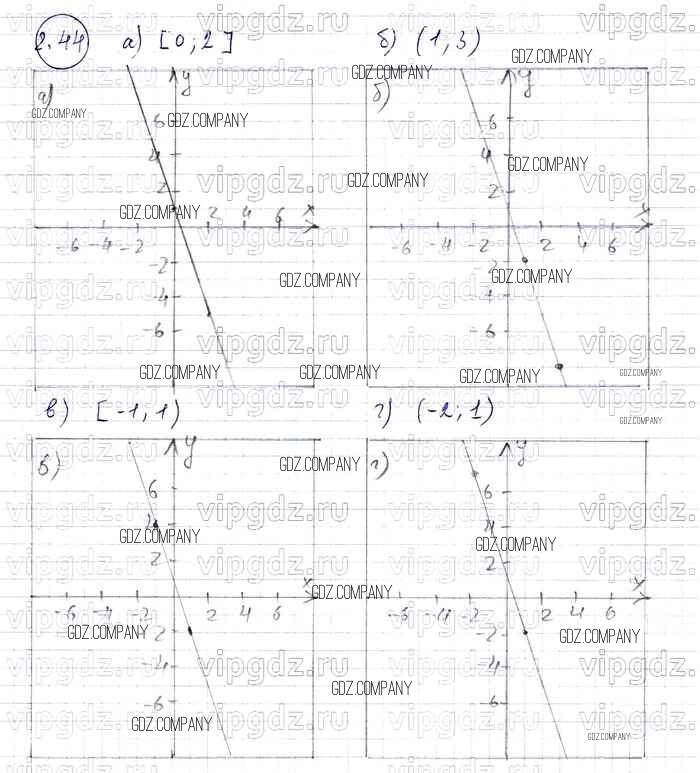 2.44 а) [0; 2] б) (1, 3)
а) y
6
4
2
-6 -4 -2 2 4 6 x
-2
-4
-6
б) y
6
4
2
-6 -4 -2 2 4 6 x
2
-4
-6
в) [-1; 1) г) (-2; 1)
в) y
6
4
2
-6 -4 -2 2 4 6 x
-2
-4
-6
г) y
6
4
2
-6 -4 -2 2 4 6 x
-2
-4
-6
GDZ.COMPANY
vipgdz.ru